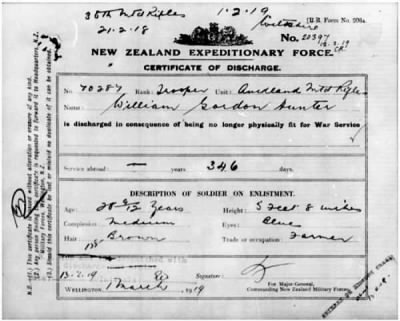 35th Mtd Rifles 1·2·19
21·2·18 Wiltshire N.Z.R. Form No.
No. 20397
NEW ZEALAND EXPEDITIONARY FORCE.
CERTIFICATE OF DISCHARGE.
No. 70287 Rank: Trooper Unit: Auckland Mtd Rifles
Name: William Gordon Hunter
is discharged in consequence of being no longer physically fit for War Service
Service abroad:— — years 346 days.
DESCRIPTION OF SOLDIER ON ENLISTMENT.
Age: Years Height: 5 Feet 8 inches
Complexion: Medium Eyes: Blue
Hair: Brown Trade or occupation: Farmer
13·2·19 Signature:
WELLINGTON, 1 March 1919 For Major-General, Commanding New Zealand Military Forces.
N.B.—(1.) This certificate is issued without alteration or erasure of any kind.
(2.) Any person finding this certificate is requested to forward it to Headquarters, N.Z. Military Forces, Wellington, N.Z.
(3.) Should this certificate be lost or mislaid no duplicate of it can be obtained.